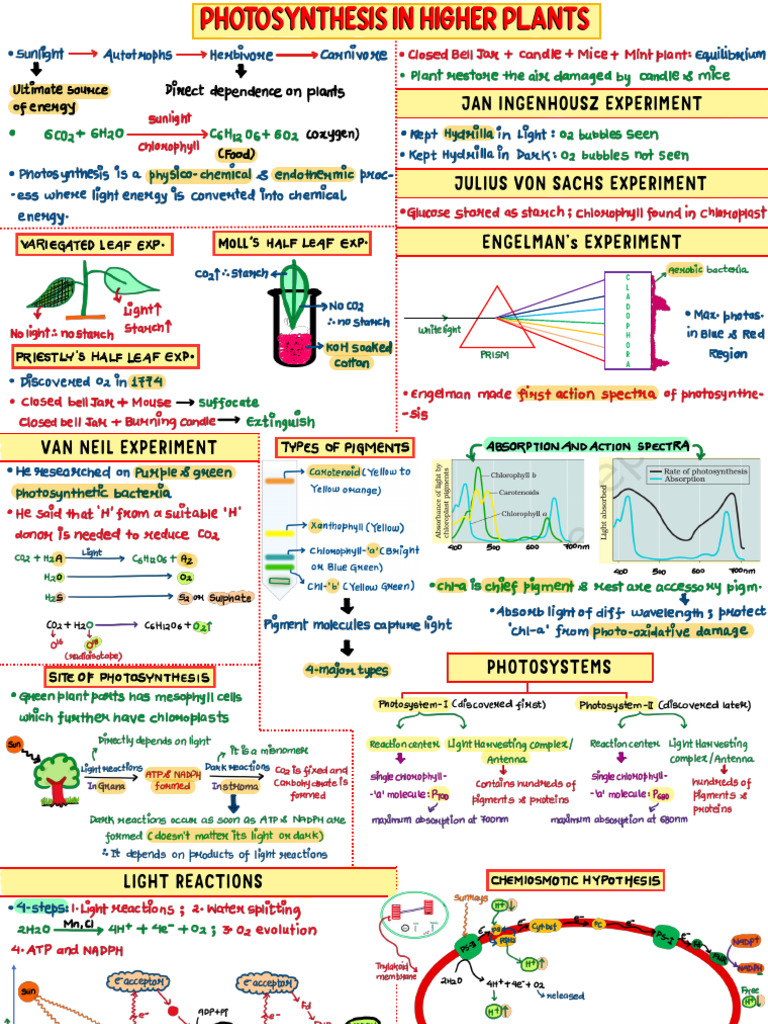 PHOTOSYNTHESIS IN HIGHER PLANTS
• Sunlight → Autotrophs → Herbivore → Carnivore
Ultimate source
of energy
Direct dependence on plants
• 6CO2 + 6H2O → C6H12O6 + 6O2 (oxygen)
sunlight
chlorophyll
(Food)
• Photosynthesis is a physico-chemical & endothermic proc-
ess where light energy is converted into chemical
energy.
• Closed Bell Jar + candle + Mice + Mint plant: Equilibrium
• Plant restore the air damaged by candle & mice
JAN INGENHOUSZ EXPERIMENT
• Kept Hydrilla in Light: O2 bubbles seen
• Kept Hydrilla in Dark: O2 bubbles not seen
JULIUS VON SACHS EXPERIMENT
• Glucose stored as starch; Chlorophyll found in Chloroplast
VARIEGATED LEAF EXP.
Light↑
Starch↑
No light ∴ no starch
MOLL'S HALF LEAF EXP.
CO2↑ ∴ Starch
NO CO2
∴ no starch
KOH soaked
cotton
ENGELMAN's EXPERIMENT
white light
PRISM
CLADOPHORA
Aerobic bacteria
• Max. photos.
in Blue & Red
Region
• Engelman made first action spectra of photosynthe-
-sis
PRIESTLY'S HALF LEAF EXP.
• Discovered O2 in 1774
• Closed bell Jar + Mouse → suffocate
Closed bell Jar + Burning candle → Extinguish
VAN NEIL EXPERIMENT
• He researched on Purple & green
photosynthetic bacteria
• He said that 'H' from a suitable 'H'
donor is needed to reduce CO2
CO2 + H2A → C6H12O6 + A2
Light
H2O → O2
H2S → S2 or Sulphate
CO2 + H2O → C6H12O6 + O2↑
O16 O18
(radioisotope)
TYPES OF PIGMENTS
Carotenoid (Yellow to
Yellow orange)
Xanthophyll (Yellow)
Chlorophyll-'a' (Bright
or Blue Green)
Chl-'b' (Yellow Green)
Pigment molecules capture light
4-major types
ABSORPTION AND ACTION SPECTRA
Absorbance of light by
chloroplast pigments
Chlorophyll b
Carotenoids
Chlorophyll a
400 500 600 700nm
Light absorbed
Rate of photosynthesis
Absorption
400 500 600 700nm
• chl-a is chief pigment & rest are accessory pigm.
• Absorb light of diff. wavelength & protect
'chl-a' from photo-oxidative damage
SITE OF PHOTOSYNTHESIS
• Green plant parts has mesophyll cells
which further have chloroplasts
Sun
Directly depends on light
It is a misnomer
Light reactions
In Grana
ATP & NADPH
formed
Dark reactions
In stroma
CO2 is fixed and
Carbohydrate is
formed
Dark reactions occur as soon as ATP & NADPH are
formed (doesn't matter its light or dark)
∴ It depends on products of light reactions
PHOTOSYSTEMS
Photosystem-I (discovered first)
Photosystem-II (discovered later)
Reaction center
Light Harvesting complex/
Antenna
single chlorophyll-
-'a' molecule: P700
Contains hundreds of
pigments & proteins
maximum absorption at 700nm
Reaction center
Light Harvesting
complex/Antenna
single chlorophyll-
'a' molecule: P680
hundreds of
pigments &
proteins
maximum absorption at 680nm
LIGHT REACTIONS
• 4-steps: 1. Light reactions; 2. Water splitting
2H2O → 4H+ + 4e- + O2; 3. O2 evolution
Mn, Cl
4. ATP and NADPH
sun
e- acceptor
e-
ADP+Pi
e- acceptor
e-
Fd
CHEMIOSMOTIC HYPOTHESIS
Thylakoid
membrane
Sunrays
H+↓
PS-II
e-
Cyt-bef
e-
PC
e-
PS-I
e-
NADP+
NADPH
H+↑
2H2O
4H+ + 4e- + O2
released
H+↑
Free
H+↓